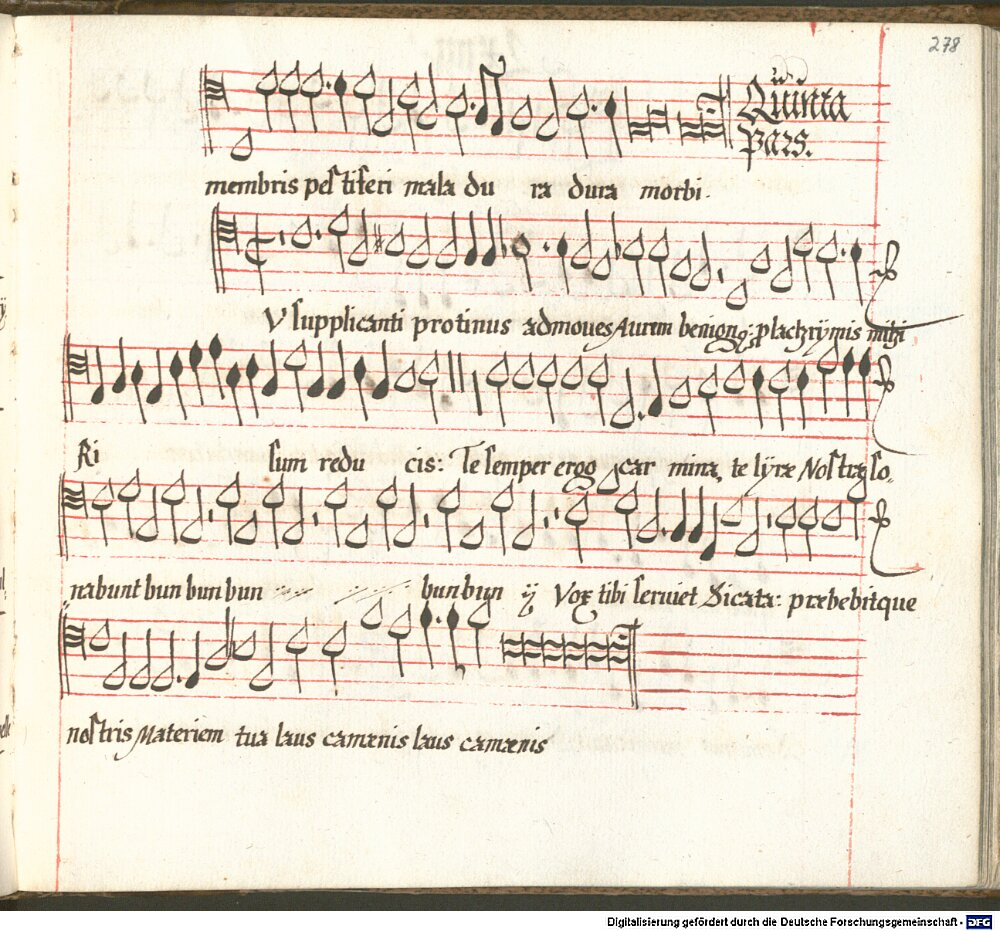 278
Quinta
Pars.
membris pestiferi mala du ra dura morbi.
Tu supplicanti protinus admoves Aurem benignq: placrÿmis mihi
Ri sum redu cis: Te semper ergo, car mina, te lÿræ Nostræ so,
nabunt bun bun bun bun bun ij Vox tibi serviet Dicata: præbebitque
nostris Materiem tua laus camænis laus camænis
Digitalisierung gefördert durch die Deutsche Forschungsgemeinschaft - DFG